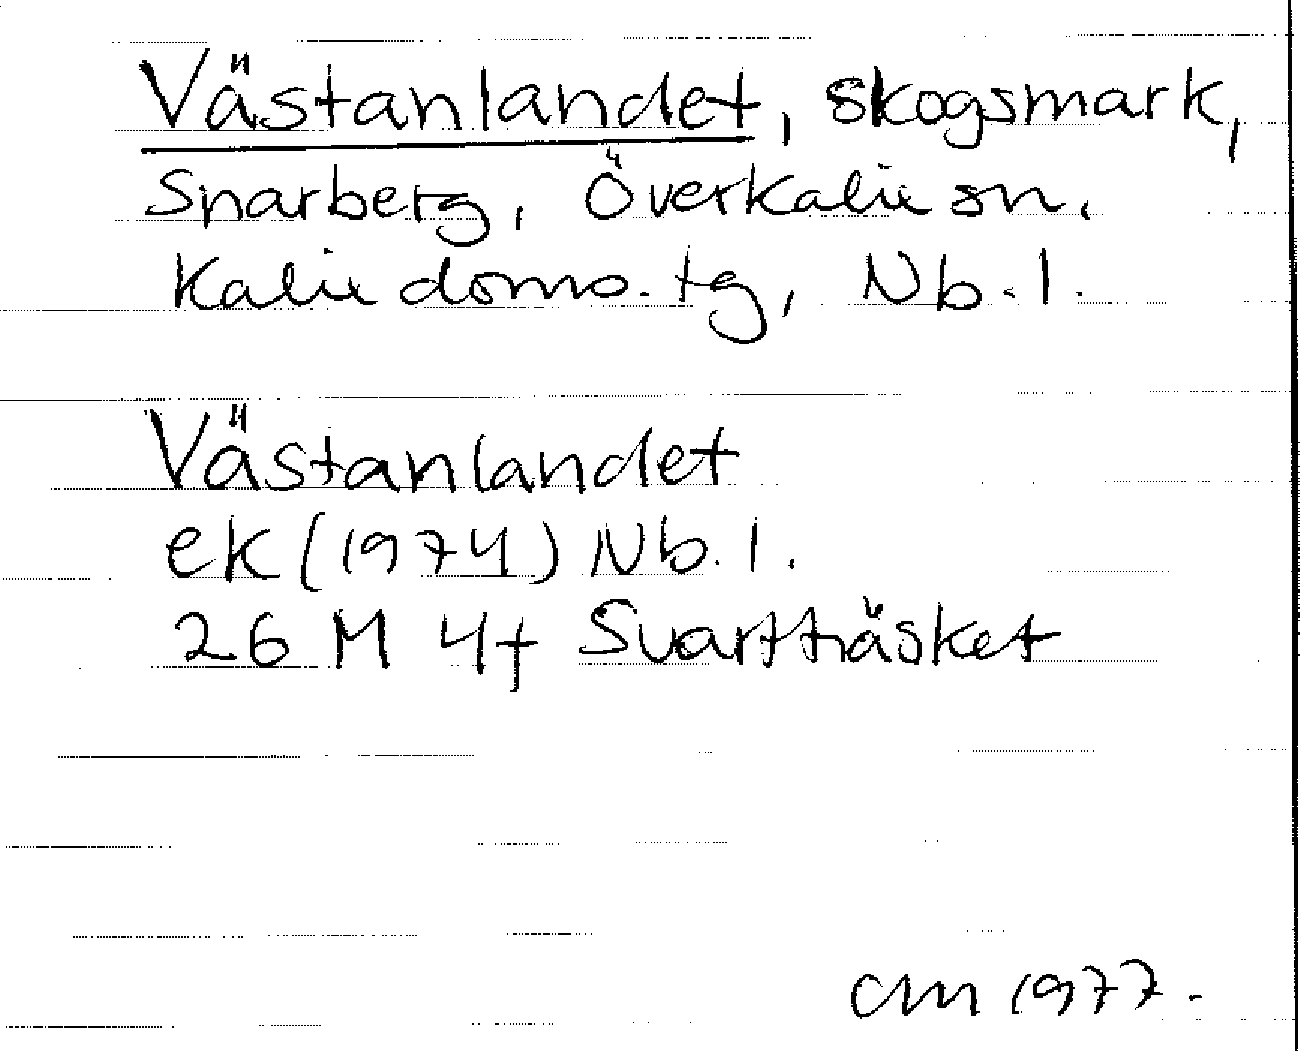 Västanlandet, skogsmark,
Snarberg, Överkalix sn,
Kalix doms. tg, Nb. l.
Västanlandet
ek (1974) Nb. l.
26 M 4f Svartträsket
CM 1977.